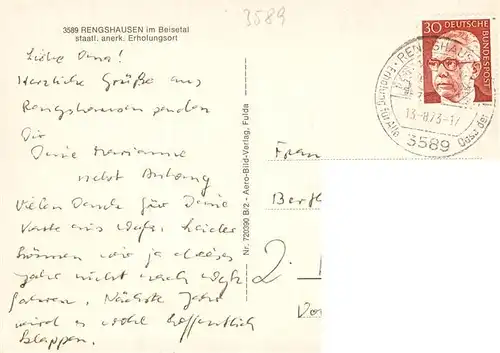 3589
3589 RENGSHAUSEN im Beisetal
staatl. anerk. Erholungsort
Liebe Oma!
Herzliche Grüße aus
Rengshausen senden
Dir
Deine Marianne
nebst Anhang
Vielen Dank für Deine
Karte aus Leider
können wir ja dieses
Jahr nicht nach
fahren. Nächstes Jahr
wird es wohl hoffentlich
klappen.
Nr. 720390 B/2 - Aero-Bild-Verlag, Fulda
30 DEUTSCHE BUNDESPOST
RENGSHAUSEN
13.-8.73-17
3589
für Alle
Frau
Bergh
2